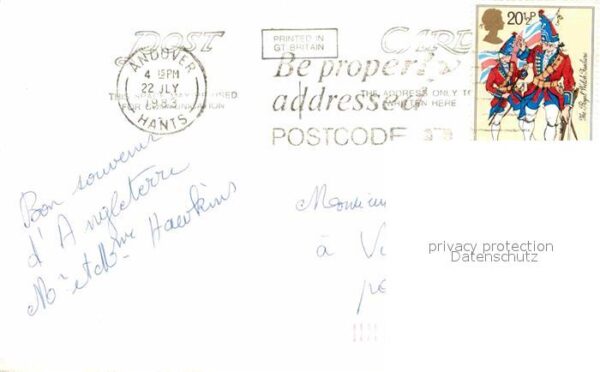 Post Card
PRINTED IN
GT BRITAIN
20½P
The Royal Welch Fusiliers
ANDOVER
4 PM
22 JLY
1983
HANTS
Be properly
addressed
POSTCODE
THE ADDRESS ONLY TO
WRITTEN HERE
FOR COMMUNICATION
Bon souvenir
d'Angleterre
Mr et Mme Hawkins
Monsieur
à V
privacy protection
Datenschutz